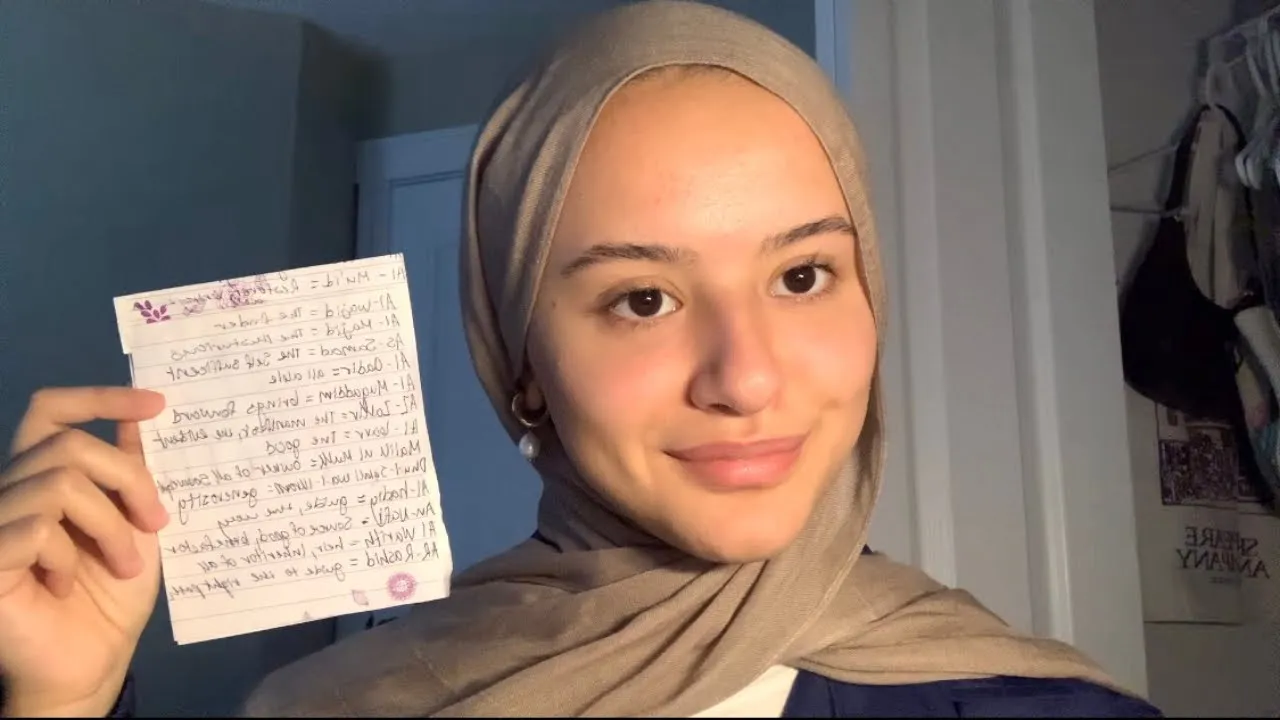 Al-Mu'id = Restorer
Al-wajid = The finder
Al-Majid = The Illustrious
As-Samad = The Self Sufficent
Al-Qadir = all able
Al-Muqaddim = brings forward
Az-Zahir = The manifest, the evident
Al-barr = The good
Malik ul Mulk = owner of all
Dhul-Jalali wal-Ikram = generosity
Al-hadiy = guide, the way
An-Nafi = Source of good, benefactor
Al Warith = heir, Inheritor of all
AR-Rashid = guide to the right path
SPEARE
MPANY